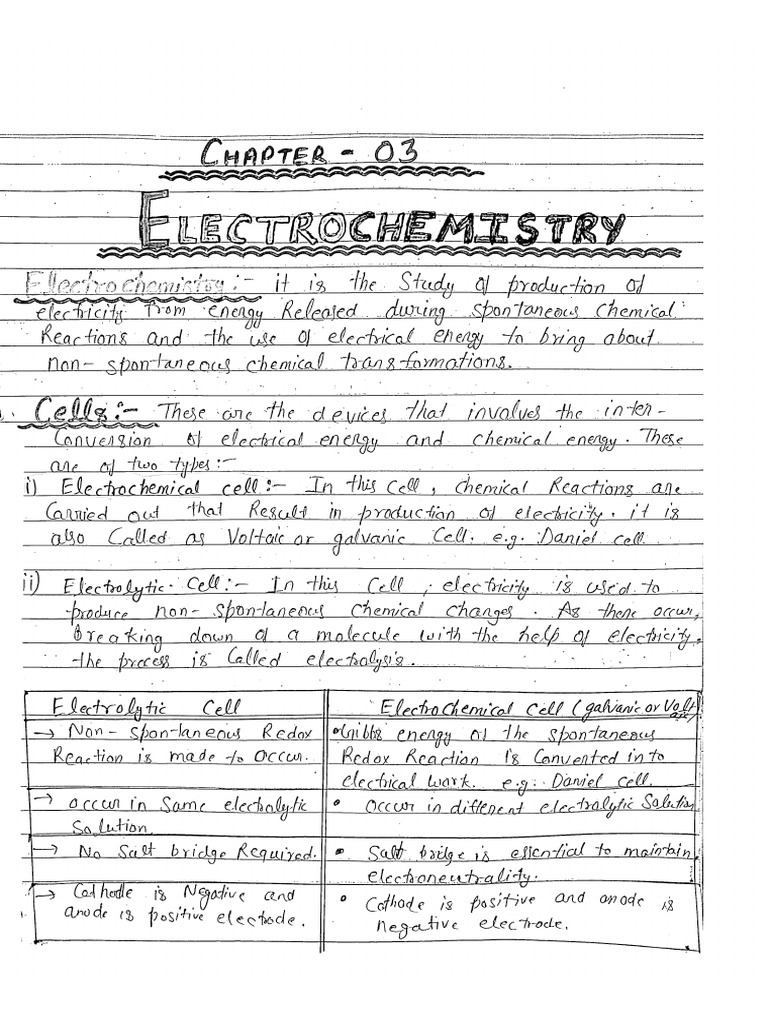 CHAPTER - 03
ELECTROCHEMISTRY
Electrochemistry:- it is the Study of production of
electricity from energy Released during spontaneous Chemical
Reactions and the use of electrical energy to bring about
non-spontaneous chemical transformations.
Cells:- These are the devices that involves the inter-
Conversion of electrical energy and chemical energy. These
are of two types:-
i) Electrochemical cell:- In this Cell, Chemical Reactions are
Carried out that Result in production of electricity. it is
also Called as Voltaic or galvanic Cell. e.g. Daniel cell
ii) Electrolytic Cell:- In this Cell, electricity is used to
produce non-spontaneous chemical changes. As there occur,
breaking down of a molecule with the help of electricity,
the process is Called electrolysis.
Electrolytic Cell
→ Non-Spontaneous Redox
Reaction is made to Occur.
→ occur in Same electrolytic
Solution.
→ No Salt bridge Required.
→ Cathode is Negative and
anode is positive electrode.
ElectroChemical Cell (galvanic or Volt
aic)
• Gibbs energy of the spontaneous
Redox Reaction is Converted in to
electrical work. e.g:- Daniel Cell.
• Occur in different electrolytic Solution
• Salt bridge is essential to maintain
electroneutrality.
• Cathode is positive and anode is
negative electrode.